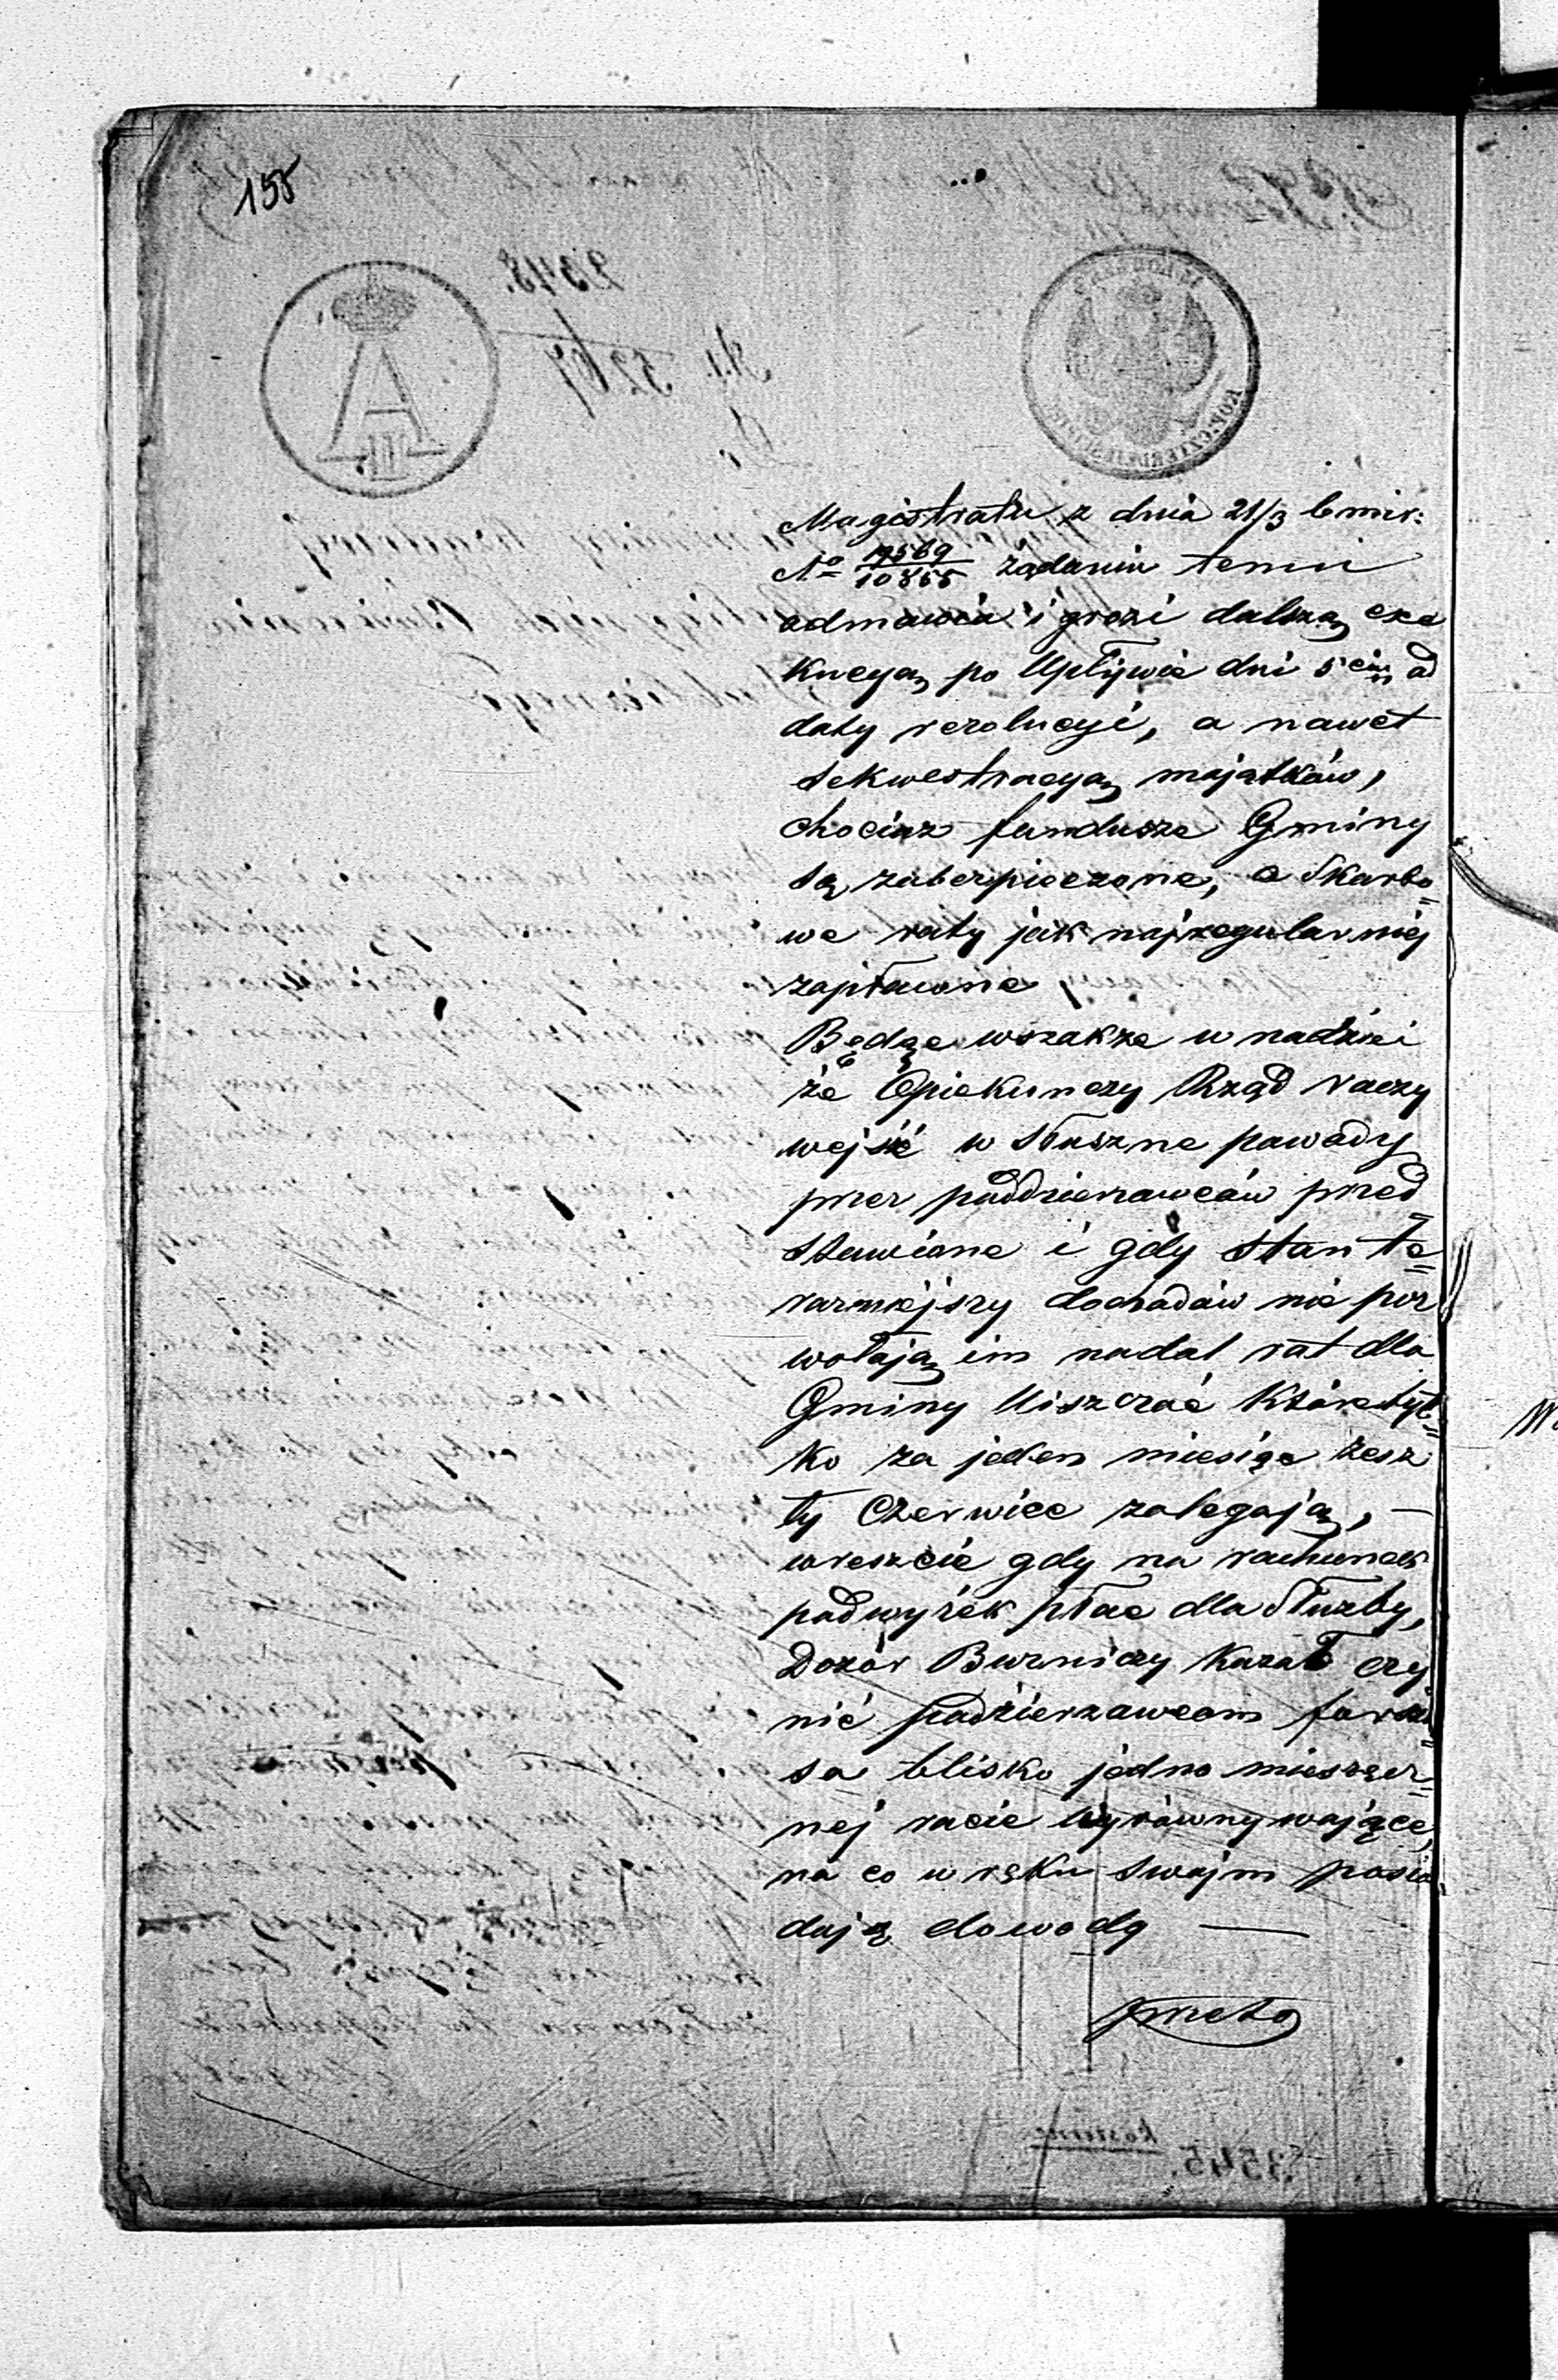 155
Magistratu z dnia 21/3 b mir:
No 19569/10855 żądaniu temu
odmawia i grozi dalszą exe
kucyą po Upływie dni 5ciu od
daty rezolucyi, a nawet
sekwestracyą majątków,
chociaz fundusze Gminy
są zabezpieczone, a Skarbo=
we raty jak najregularniej
zapłacone
Będąc wszakze w nadziei
że Opiekunczy Rząd raczy
wejść w słuszne powody
przez poddzierzawców przed=
stawione i gdy stan te=
razniejszy dochodów nie poz
wolają im nadal rat dla
Gminy Uiszczać które tyl=
ko za jeden miesiąc zesz
ły Czerwiec zalegają, —
wreszcie gdy na rachunek
podwyżek płac dla Służby,
Dozór Bużniczy kazał czy
nić podzierzawcom forszu=
sa blisko jedno miesięcz=
nej racie wyrównywające,
na co w ręku swojm posia=
dają dowody —